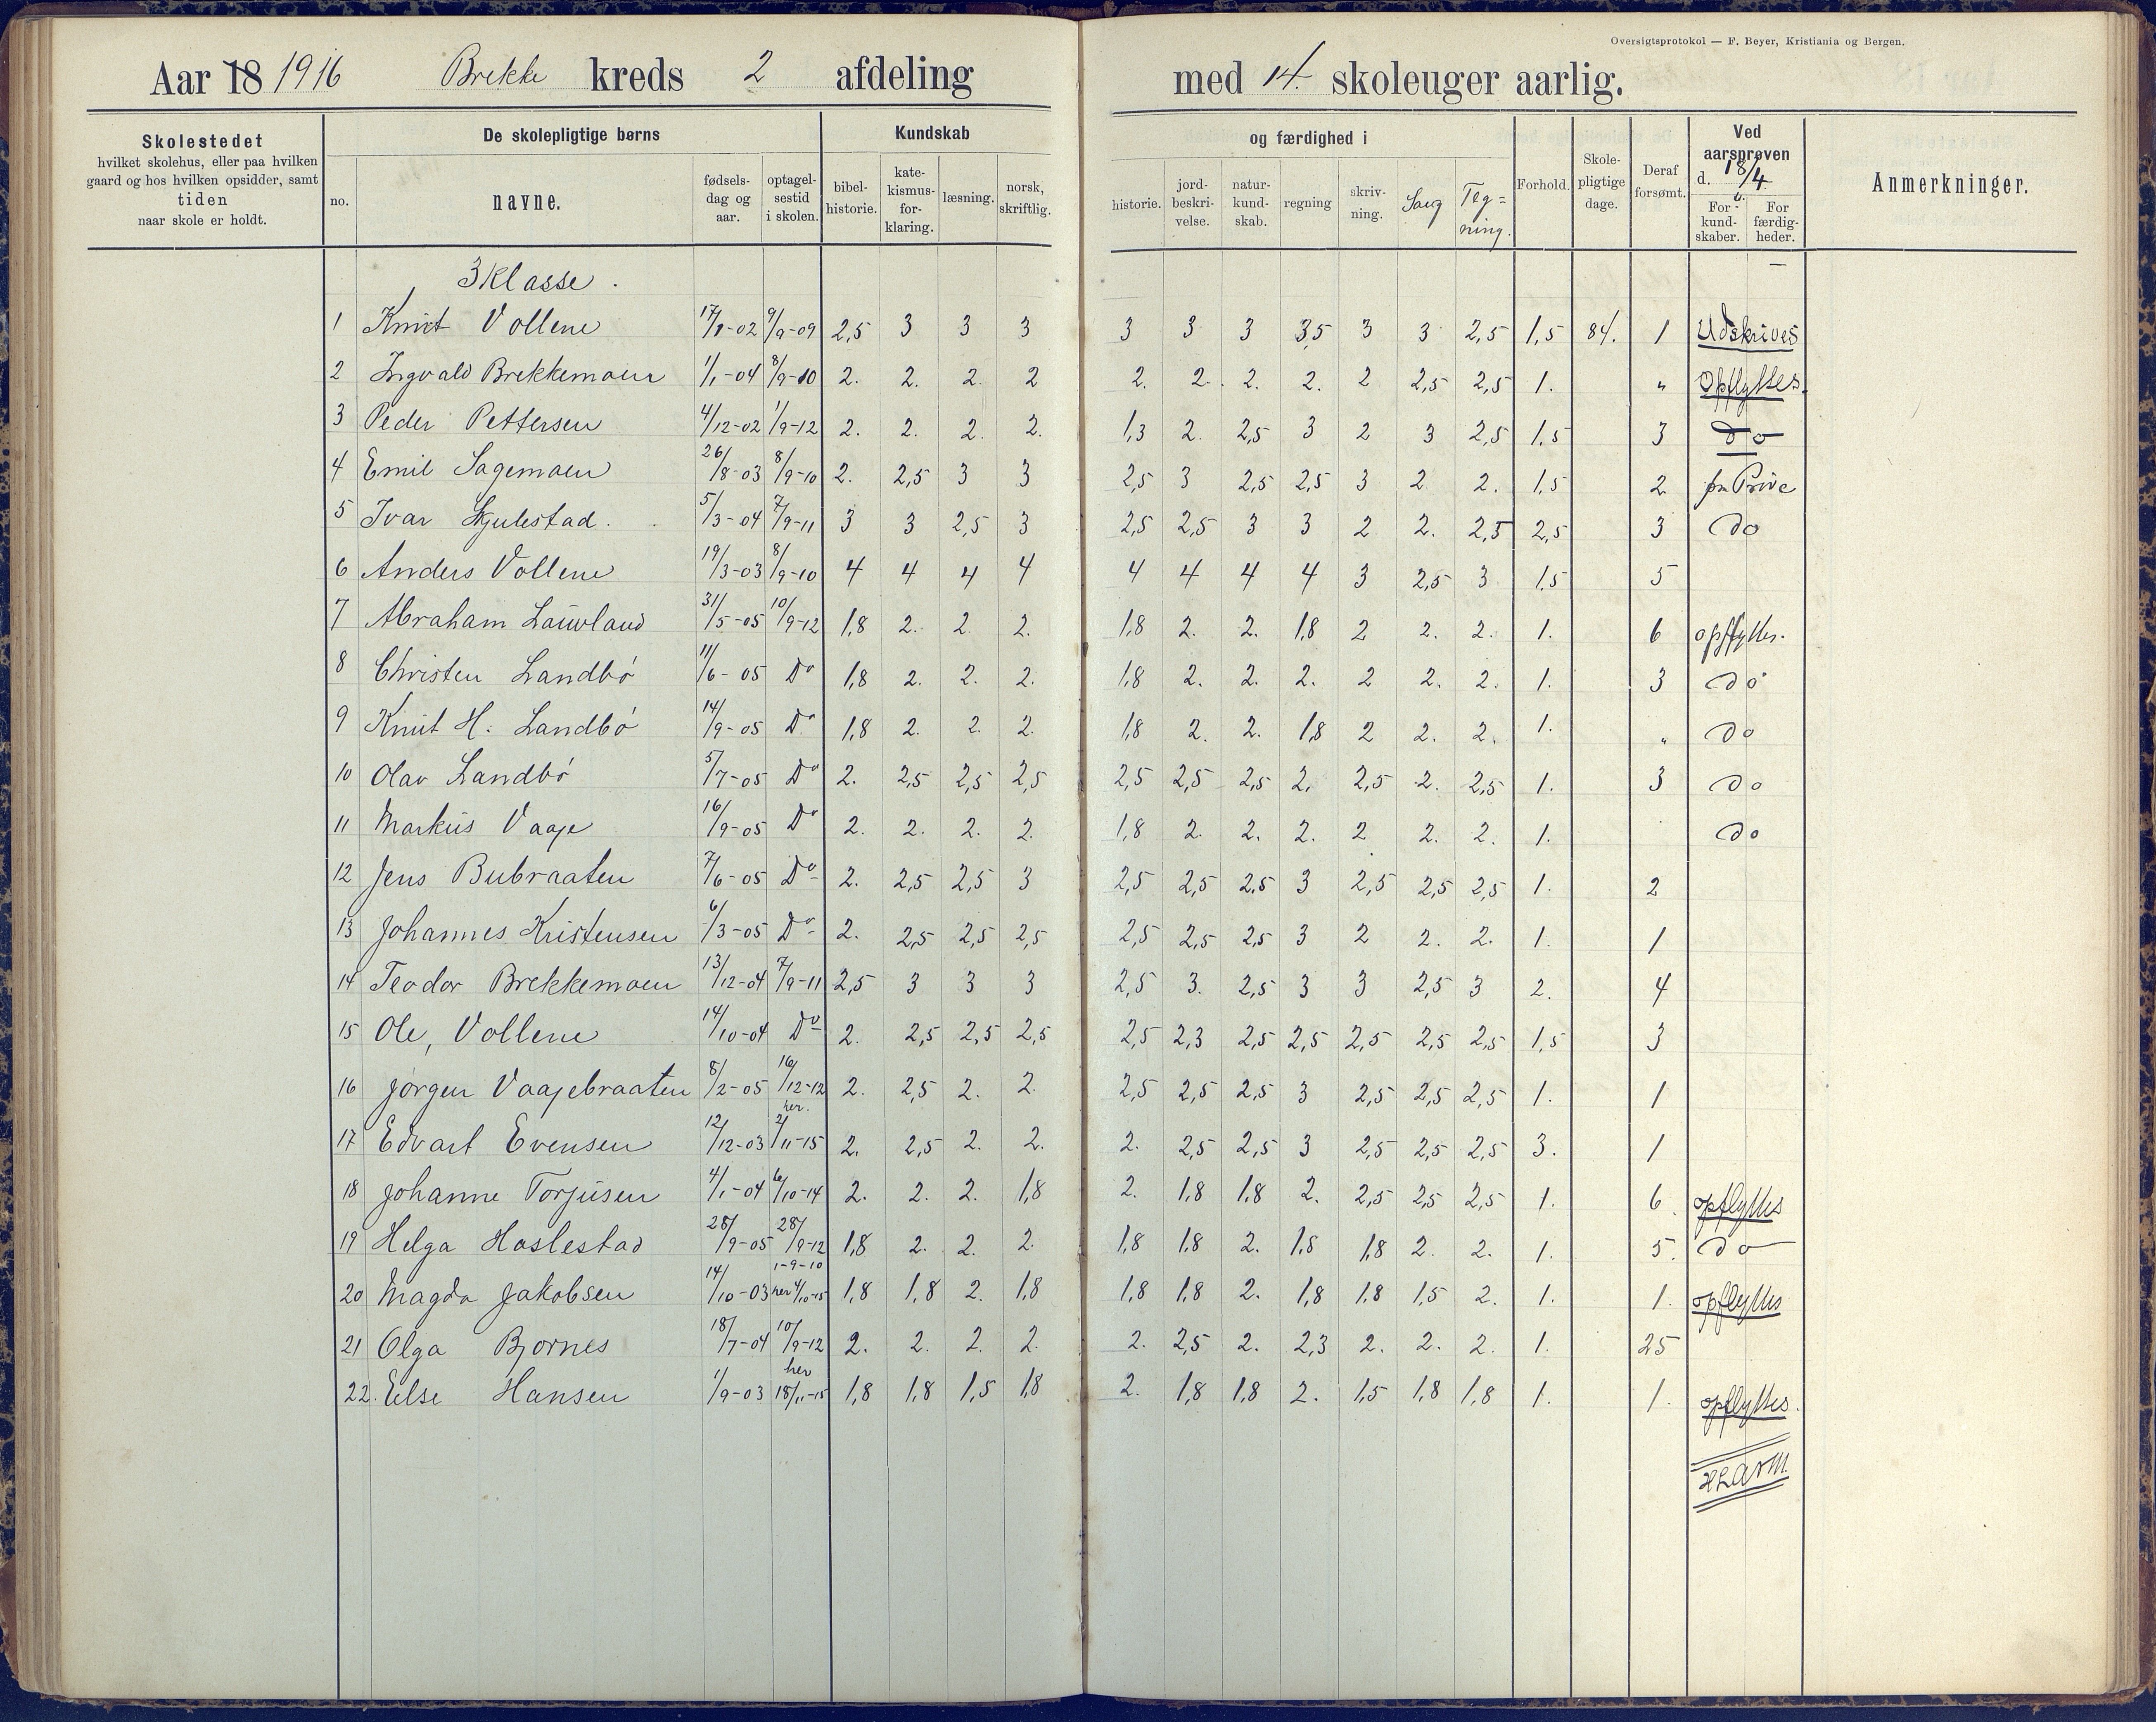 Oversigtsprotokol — F. Beyer, Kristiania og Bergen.
Aar 18 1916 Brekke kreds 2 afdeling med 14. skoleuger aarlig.
Skolestedet
hvilket skolehus, eller paa hvilken
gaard og hos hvilken opsidder, samt
tiden
naar skole er holdt.
De skolepligtige børns
no.
navne.
fødsels-
dag og
aar.
optagel-
sestid
i skolen.
Kundskab
bibel-
historie.
kate-
kismus-
for-
klaring.
læsning.
norsk,
skriftlig.
og færdighed i
historie.
jord-
beskri-
velse.
natur-
kund-
skab.
regning
skriv-
ning.
Sang
Teg=
ning.
Forhold.
Skole-
pligtige
dage.
Deraf
forsømt.
Ved
aarsprøven
d. 18/4
For
kund-
skaber.
For
færdig-
heder.
Anmerkninger.
3 Klasse.
1 Knut Vollene 17/8-02 9/9-09 2,5 3 3 3 3 3 3 3,5 3 3 2,5 1,5 84. 1 Udskrives
2 Ingvald Brekkemoen 1/1-04 8/9-10 2. 2. 2. 2 2. 2. 2. 2. 2 2,5 2,5 1. " Opflyttes.
3 Peder Pettersen 4/12-02 1/9-12 2. 2. 2. 2. 1,3 2. 2,5 3 2 3 2,5 1,5 3 do
4 Emil Sagemoen 26/8-03 8/9-10 2. 2,5 3 3 2,5 3 2,5 2,5 3 2 2. 1,5 2
5 Ivar Skjulestad. 5/3-04 7/9-11 3 3 2,5 3 2,5 2,5 3 3 2 2. 2,5 2,5 3 do
6 Anders Vollene 19/3-03 8/9-10 4 4 4 4 4 4 4 4 3 2,5 3 1,5 5
7 Abraham Lauvland 31/5-05 10/9-12 1,8 2. 2. 2. 1,8 2. 2. 1,8 2 2. 2. 1. 6 opflyttes.
8 Christen Landbø 11/6-05 Do 1,8 2. 2. 2. 1,8 2. 2. 2. 2 2. 2. 1. 3 do
9 Knut H. Landbø 14/9-05 Do 1,8 2. 2. 2. 1,8 2. 2. 1,8 2 2. 2. 1. " do
10 Olav Landbø 5/7-05 Do 2. 2,5 2,5 2,5 2,5 2,5 2,5 2. 2,5 2. 2,5 1. 3 do
11 Markus Vaaje 16/9-05 Do 2. 2. 2. 2. 1,8 2. 2. 2. 2 2. 2. 1. do
12 Jens Bubraaten 7/6-05 Do 2. 2,5 2,5 3 2,5 2,5 2,5 3 2,5 2,5 2,5 1. 2
13 Johannes Kristensen 6/3-05 Do 2. 2,5 2,5 2,5 2,5 2,5 2,5 3 2 2. 2. 1. 1
14 Teodor Brekkemoen 13/12-04 7/9-11 2,5 3 3 3 2,5 3. 2,5 3 3 2,5 3 2. 4
15 Ole, Vollene 14/10-04 Do 2. 2,5 2,5 2,5 2,5 2,3 2,5 2,5 2,5 2,5 2,5 1,5 3
16 Jørgen Vaajebraaten 8/2-05 16/12-12 2. 2,5 2. 2. 2,5 2,5 2,5 3 2,5 2,5 2,5 1. 1
17 Edvart Evensen 12/12-03 her. 2/11-15 2. 2,5 2. 2. 2. 2,5 2,5 3 2,5 2,5 2,5 3. 1
18 Johanne Torjusen 4/1-04 6/10-14 2. 2. 2. 1,8 2. 1,8 1,8 2. 2,5 2,5 2,5 1. 6. opflyttes
19 Helga Haslestad 28/9-05 28/9-12 1,8 2. 2. 2. 1,8 1,8 2. 1,8 1,8 2. 2. 1. 5. do
20 Magda Jakobsen 14/10-03 1-9-10 her 4/10-15 1,8 1,8 2. 1,8 1,8 1,8 2. 1,8 1,8 1,5 2. 1. 1. opflyttes
21 Olga Bjornes 18/7-04 10/9-12 2. 2. 2. 2. 2. 2,5 2. 2,3 2. 2. 2. 1. 25
22. Else Hansen 1/9-03 her 18/11-15 1,8 1,8 1,5 1,8 2. 1,8 1,8 2. 1,5 1,8 1,8 1. 1. opflyttes.